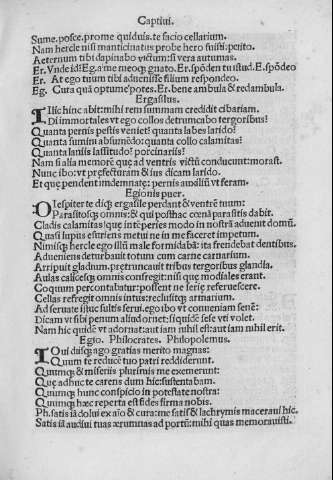 Captiui.
Sume. posce. prome quiduis. te facio cellarium.
Nam hercle nisi manticinatus probe hero fuisti: petito.
Aeternum tibi dapinabo victum: si vera autumas.
Er. Vnde id? Eg. a me meoq; gnato. Er. spōden tu istud. E. spōdeo
Er. At ego tuum tibi aduenisse filium respondeo.
Eg. Cura quā optume potes. Er. bene ambula & redambula.
Ergasilus.
Illic hinc abiit: mihi rem summam credidit cibariam.
Di immortales vt ego collos detruncabo tergoribus!
Quanta pernis pestis veniet! quanta labes larido!
Quanta sumini absumēdo: quanta collo calamitas!
Quanta laniis lassitudo! porcinariis!
Nam si alia memorē quę ad ventris victū conducunt: morast.
Nunc ibo: vt pręfecturam & ius dicam larido.
Et quę pendent indemnatę: pernis auxiliū vt feram.
Egionis puer.
Diespiter te diiq; ergasile perdant & ventrē tuum:
Parasitosq; omnis: & qui posthac cœnā parasitis dabit.
Clades calamitasq; intēperies modo in nostrā aduenit domū.
Quasi lupus esuriens metui ne in me faceret impetum.
Nimisq; hercle ego illū male formidabā: ita frendebat dentibus.
Adueniens deturbauit totum cum carne carnarium.
Arripuit gladium. pręfruncauit tribus tergoribus glandia.
Aulas calicesq; omnis confregit: nisi quę modiales erant.
Coquum percontabatur: possent ne serię referuescere.
Cellas refregit omnis intus: reclusitq; armarium.
Adseruate istūc sultis serui. ego ibo vt conueniam senē:
Dicam vt sibi penum aliud ornet: siquidē sese vti volet.
Nam hic quidē vt adornat: aut iam nihil est: aut iam nihil erit.
Egio. Philocrates. Philopolemus.
Ioui diisq; ago gratias merito magnas:
Quum te reducē tuo patri reddiderunt.
Quumq; & miseriis plurimis me exemerunt:
Quę adhuc te carens dum hic: sustentabam.
Quumq; hunc conspicio in potestate nostra:
Quumq; hæc reperta est fides firma nobis.
Ph. satis iā dolui ex aīo & cura: me satis & lachrymis maceraui hic.
Satis iā audiui tuas ærumnas ad portū: mihi quas memorauisti.